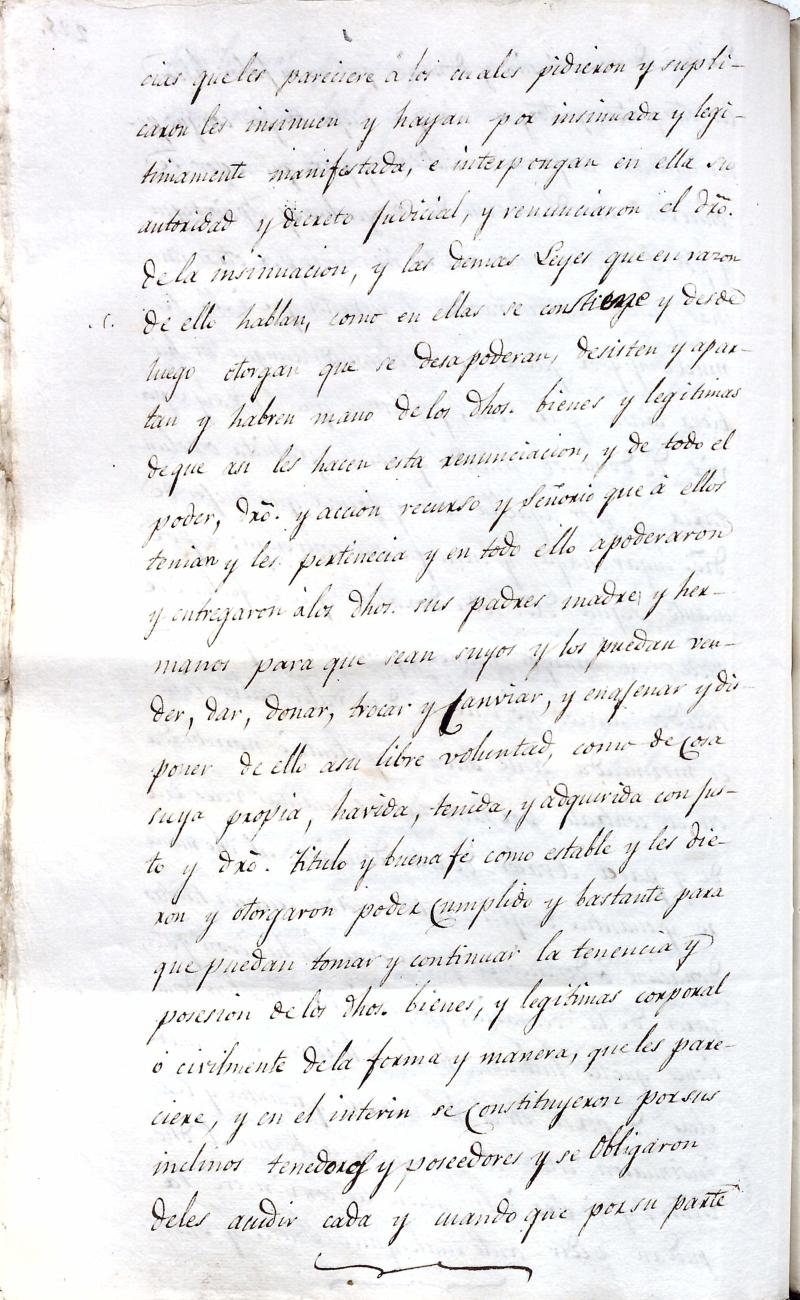 cias que les pareciere á los cuales pidieron y supli-
caron les insinuen y hayan por insinuada y legi-
timamente manifestada, e interpongan en ella su
autoridad y decreto Judicial, y renunciaron el dro.
de la insinuacion, y las demas Leyes que en razon
de ello hablan, como en ellas se contiene y desde
luego otorgan que se desapoderan, desisten y apar-
tan y habren mano de los dhos. bienes y legitimas
de que asi les hacen esta renunciacion, y de todo el
poder, dro. y accion recurso y Señorio que á ellos
tenian y les pertenecia y en todo ello apoderaron
y entregaron á los dhos. sus padres madre y her-
manos para que sean suyos y los puedan ven-
der, dar, donar, trocar y Canviar, y enagenar y dis-
poner de ello asu libre voluntad, como de Cosa
suya propia, havida, tenida, y adquirida con jus-
to y dro. titulo y buena fé como estable y les die-
ron y otorgaron poder Cumplido y bastante para
que puedan tomar y continuar la tenencia y
posesion de los dhos. bienes, y legitimas corporal
ó civilmente de la forma y manera, que les pare-
ciere, y en el interin se Constituyeron por sus
inclinos tenedores y poseedores y se Obligaron
deles acudir cada y cuando que por su parte